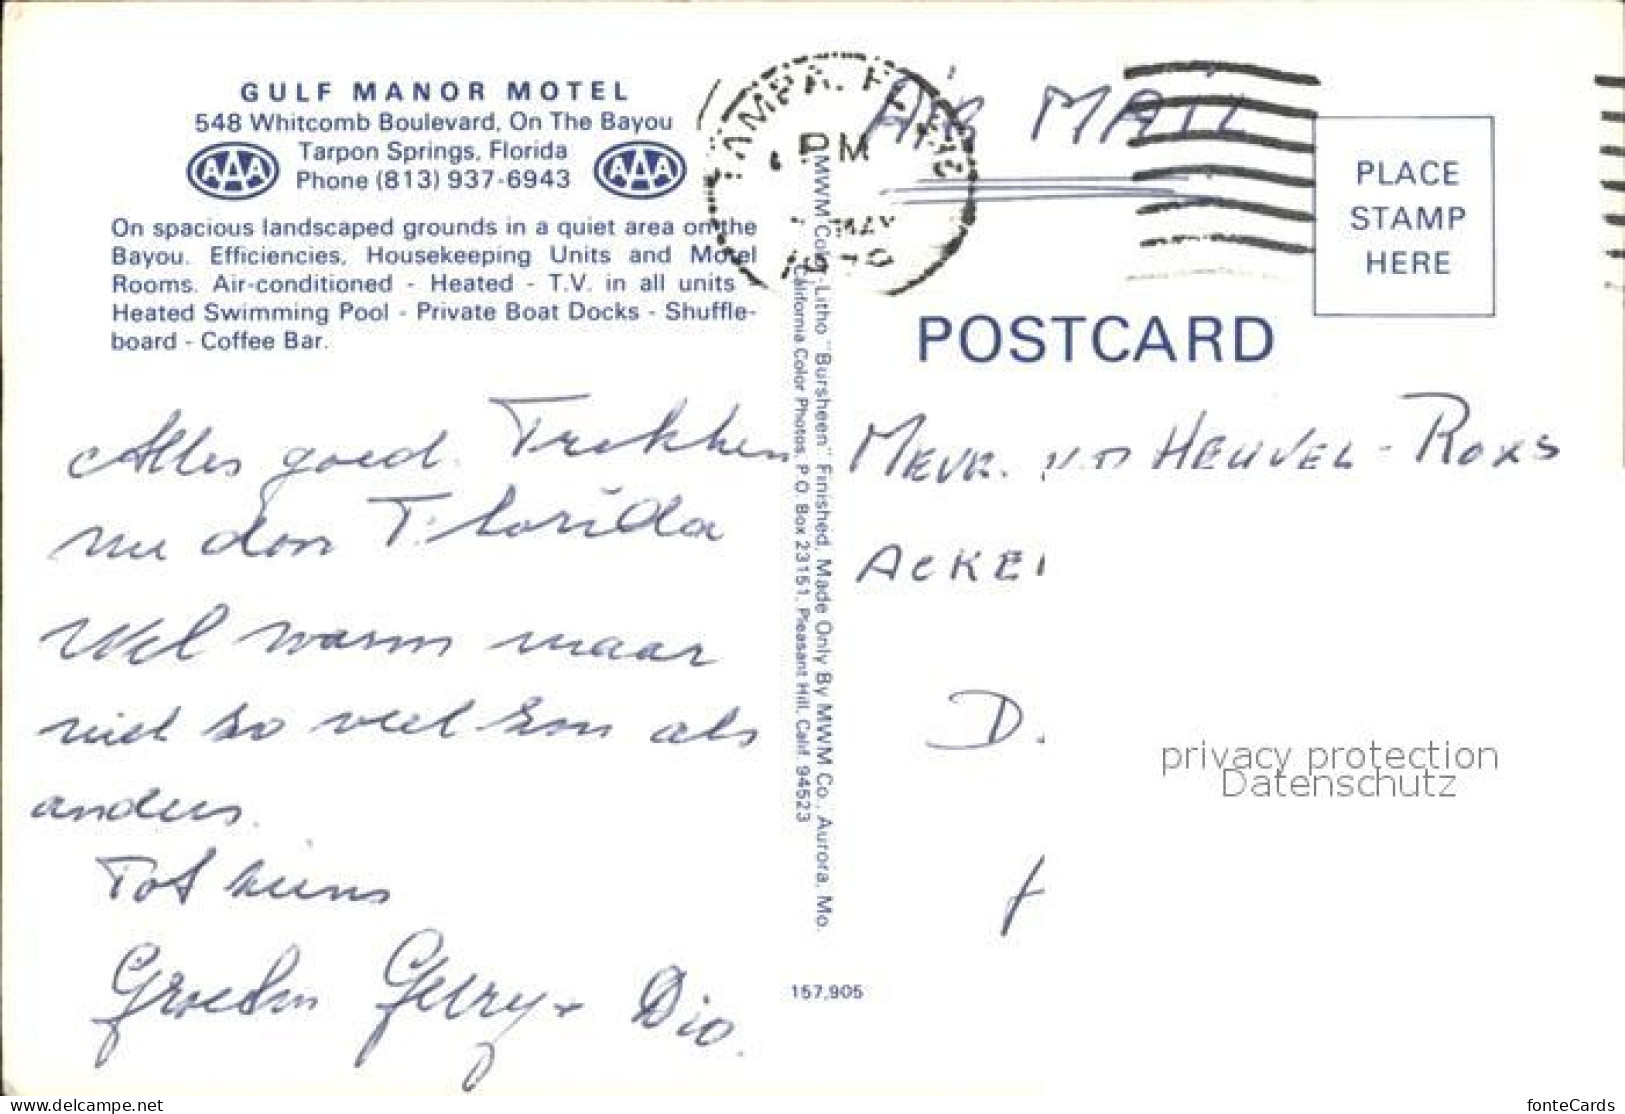 GULF MANOR MOTEL
548 Whitcomb Boulevard, On The Bayou
Tarpon Springs, Florida
Phone (813) 937-6943
AAA
AAA
On spacious landscaped grounds in a quiet area on the
Bayou. Efficiencies, Housekeeping Units and Motel
Rooms. Air-conditioned - Heated - T.V. in all units -
Heated Swimming Pool - Private Boat Docks - Shuffle-
board - Coffee Bar.
Alles goed. Trekken
nu don Florida
Wel warm maar
niet zo veel zon als
anders.
Tot ziens
Groeten Gerry + Dio.
MWM Color-Litho "Bursheen" Finished, Made Only By MWM Co., Aurora, Mo.
California Color Photos, P.O. Box 23151, Pleasant Hill, Calif. 94523
157,905
TAMPA, FL
PM
MAY
AIR MAIL
PLACE
STAMP
HERE
POSTCARD
MEVR. V.D HEUVEL - ROKS
ACKE
D.
privacy protection
Datenschutz
www.delcampe.net
fonteCards